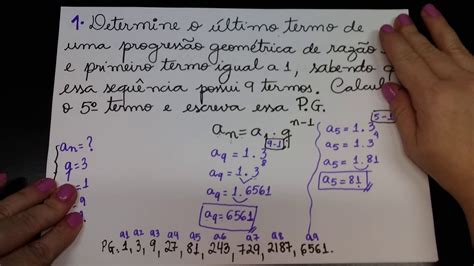 1. Determine o último termo de
uma progressão geométrica de razão
e primeiro termo igual a 1, sabendo q
essa sequência possui 9 termos. Calcul
o 5º termo e escreva essa P.G.
an = a1 . q^n-1
an = ?
q = 3
= 1
9
a9 = 1 . 3^9-1
a9 = 1 . 3^8
a9 = 1 . 6561
a9 = 6561
a5 = 1 . 3^5-1
a5 = 1 . 3^4
a5 = 1 . 81
a5 = 81
a1 a2 a3 a4 a5 a6 a7 a8 a9
P.G. 1, 3, 9, 27, 81, 243, 729, 2187, 6561.